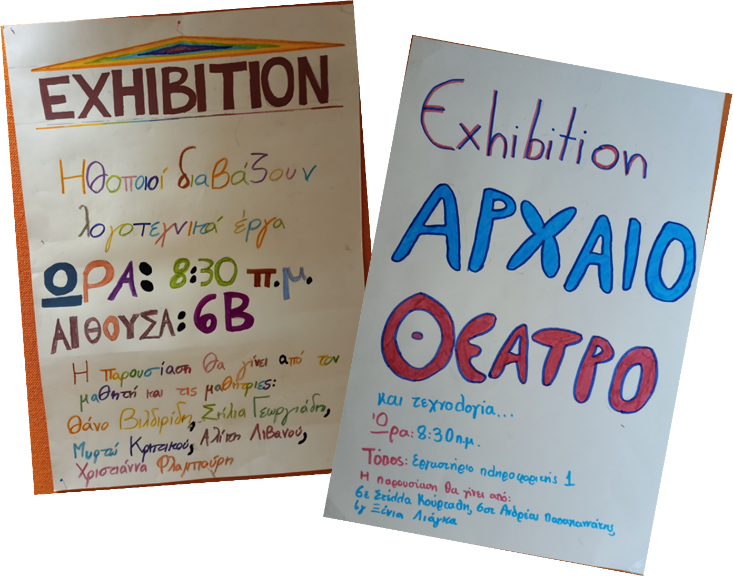 EXHIBITION
Ηθοποιοί διαβάζουν
λογοτεχνικά έργα
ΩΡΑ: 8:30 π.μ.
ΑΙΘΟΥΣΑ: 6Β
Η παρουσίαση θα γίνει από τον
μαθητή και τις μαθήτριες:
Θάνο Βιλδιρίδη, Στέλια Γεωργιάδη,
Μυρτώ Κρητικού, Αλίκη Λιβανού,
Χριστιάννα Φλαμπούρη
Exhibition
ΑΡΧΑΙΟ
ΘΕΑΤΡΟ
και τεχνολογία...
Ώρα: 8:30 πμ.
Τόπος: Εργαστήριο πληροφορικής 1
Η παρουσίαση θα γίνει από:
6ε Στέλλα Κούρταλη, 6στ Ανδρέου Παπαϊωάννης,
6γ Ξένια Λιάγκα